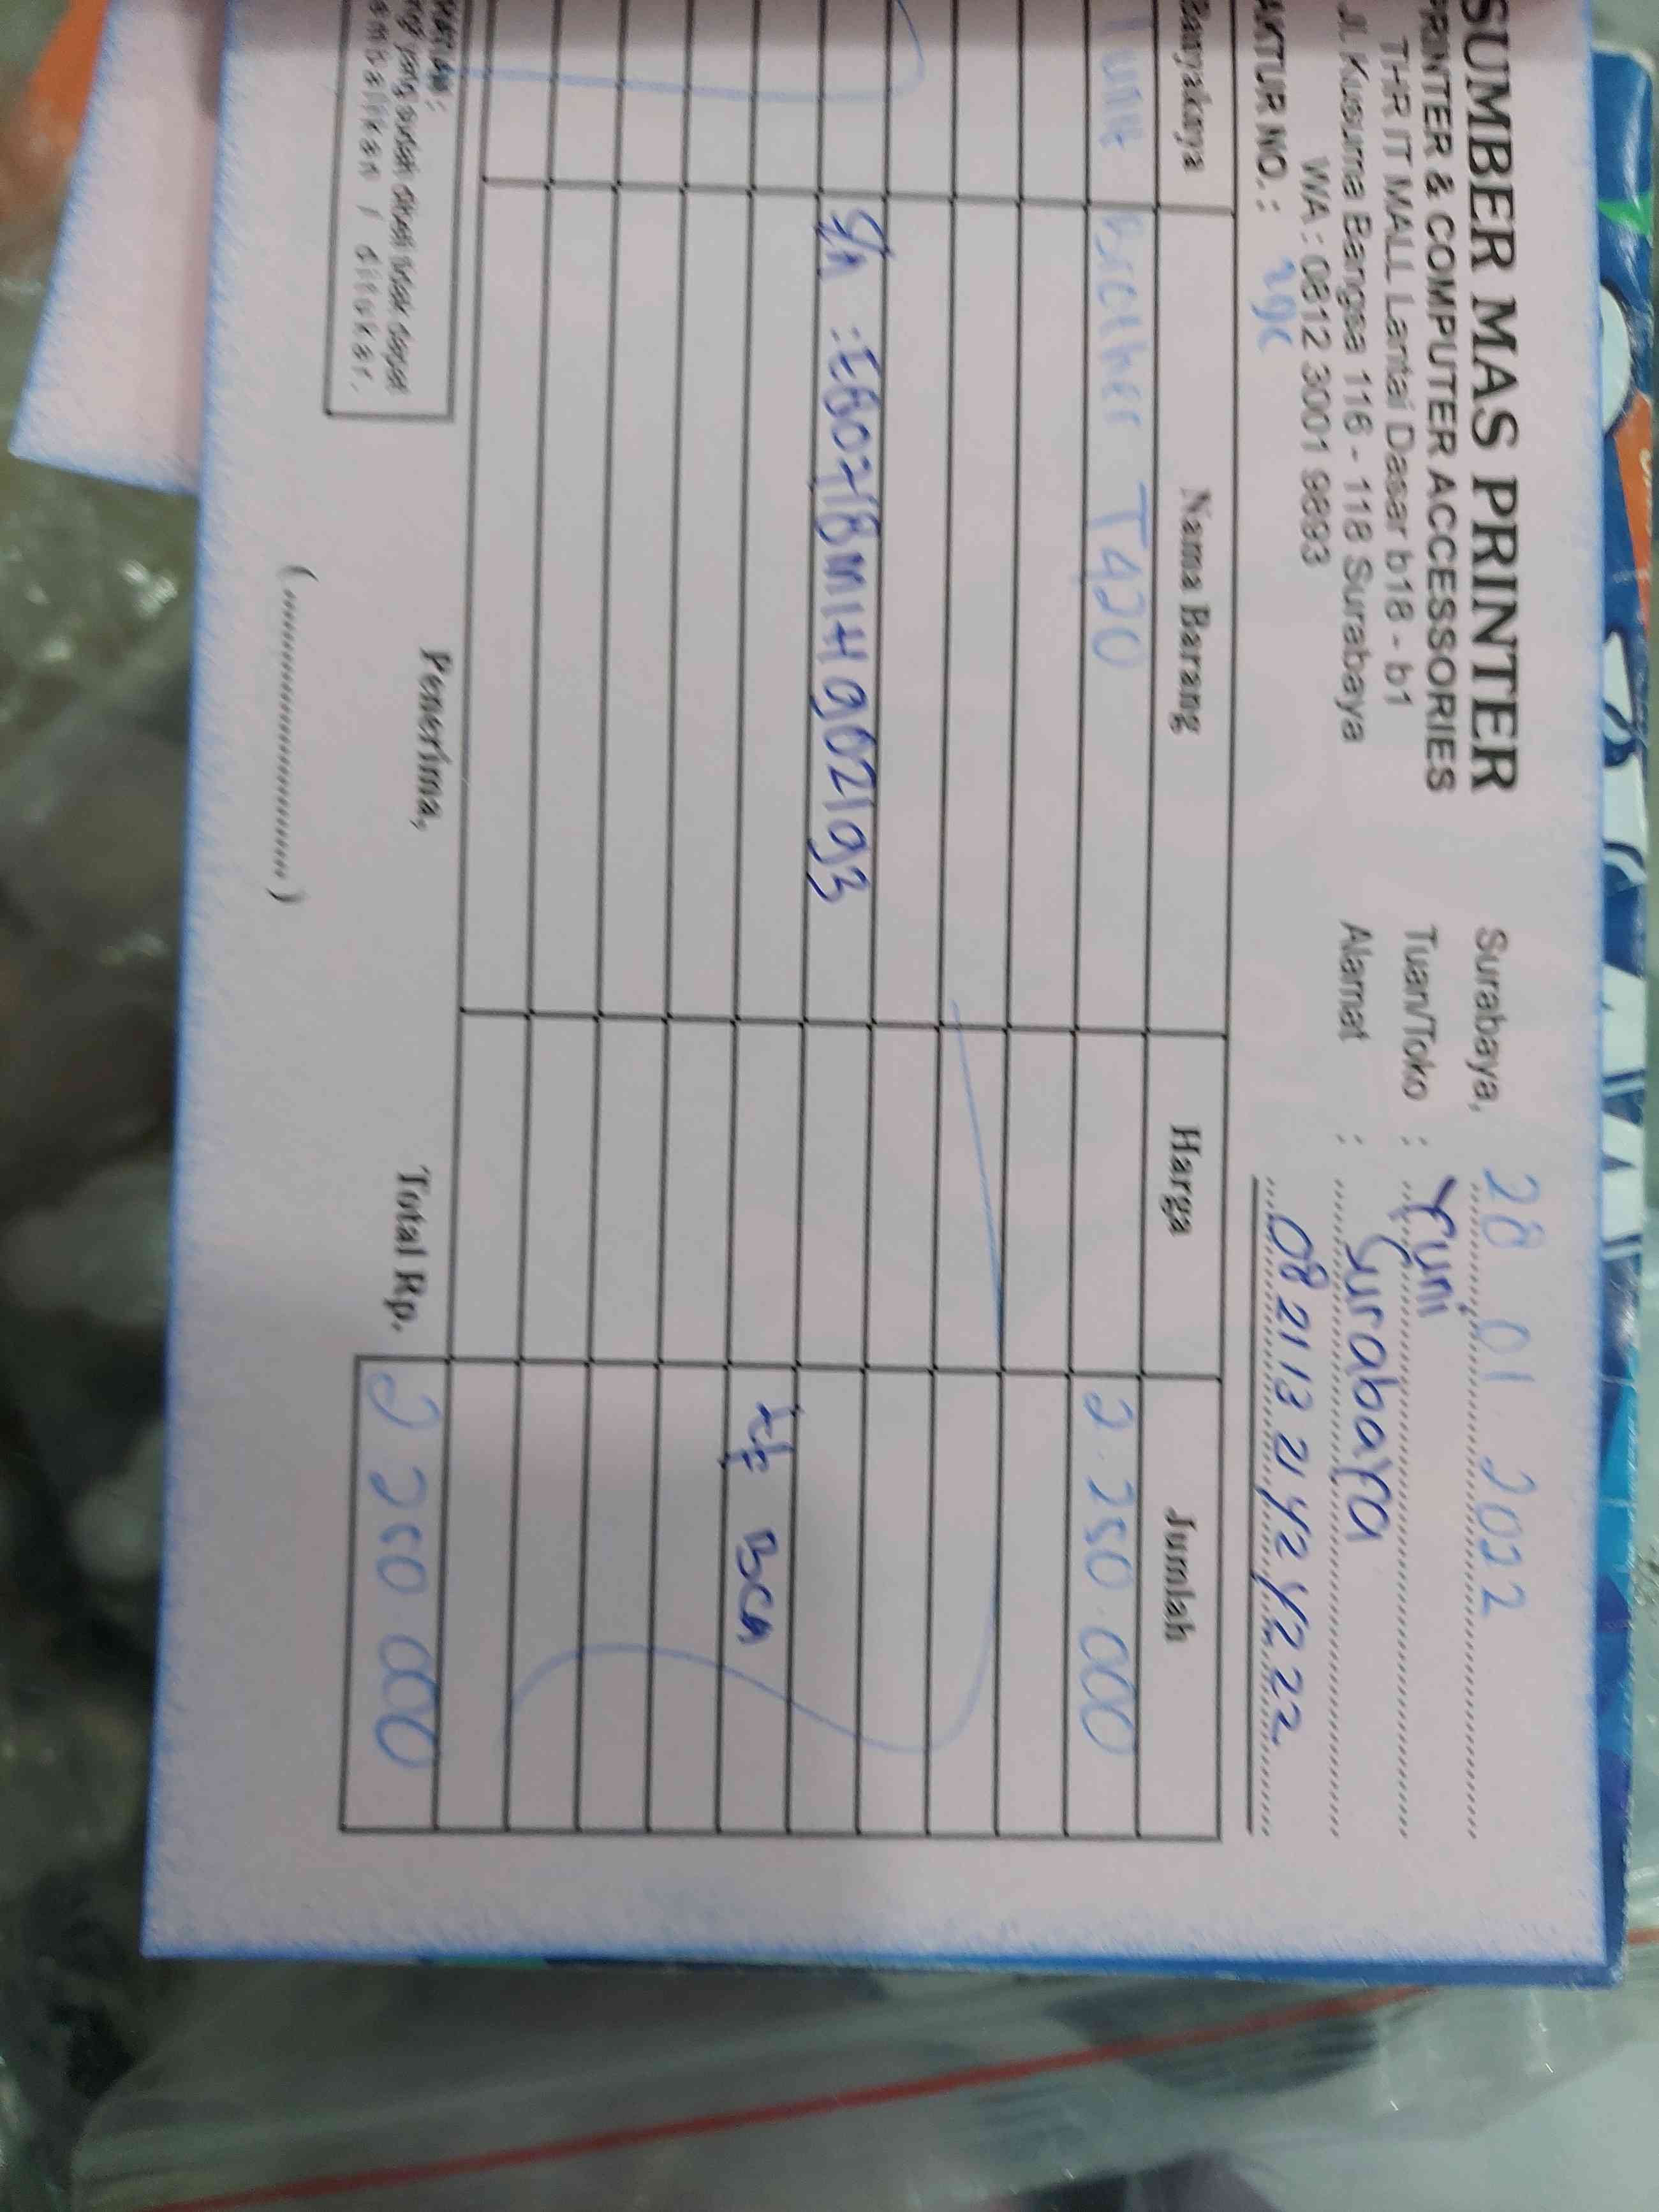 SUMBER MAS PRINTER
PRINTER & COMPUTER ACCESSORIES
THR IT MALL Lantai Dasar b18 - b1
Jl. Kusuma Bangsa 116 - 118 Surabaya
WA : 0812 3001 9893
Surabaya, 28 01 2022
Tuan/Toko : Yuni
Alamat : Surabaya
08 2113 21 42 42 22
AKTUR NO. :
Banyaknya Nama Barang Harga Jumlah
1 unit Brother T420 2.250.000
S/N : E80718M1H902193
Tf BCA
Total Rp. 2 250 000
HATIAN :
ng yang sudah dibeli tidak dapat
embalikan / ditukar.
Penerima,
(........................)